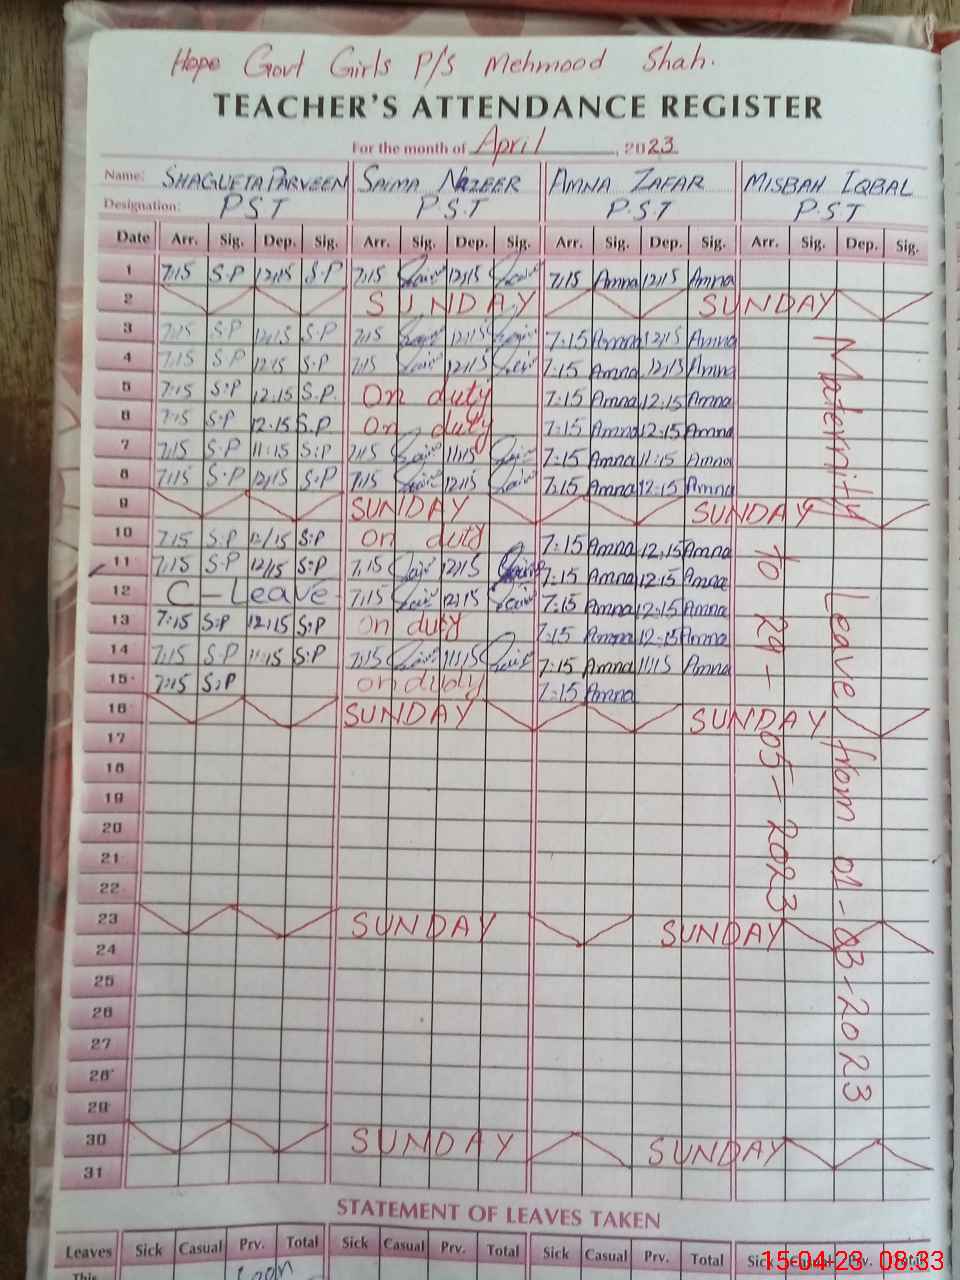 Hope Govt Girls P/S Mehmood Shah.
TEACHER'S ATTENDANCE REGISTER
For the month of April, 2023
Name: SHAGUFTA PARVEEN SAIMA NAZEER AMNA ZAFAR MISBAH IQBAL
Designation: P S T P.S.T P.S.T P.S.T
Date Arr. Sig. Dep. Sig. Arr. Sig. Dep. Sig. Arr. Sig. Dep. Sig. Arr. Sig. Dep. Sig.
1 7:15 S.P 12:15 S.P 7:15 12:15 7:15 Amna 12:15 Amna
2 SUNDAY SUNDAY
3 7:15 S.P 12:15 S.P 7:15 12:15 7:15 Amna 12:15 Amna
4 7:15 S.P 12:15 S.P 7:15 12:15 7:15 Amna 12:15 Amna
5 7:15 S:P 12:15 S.P On duty 7:15 Amna 12:15 Amna
6 7:15 S.P 12:15 S.P On duty 7:15 Amna 12:15 Amna
7 7:15 S.P 11:15 S:P 7:15 11:15 7:15 Amna 11:15 Amna
8 7:15 S.P 12:15 S.P 7:15 12:15 7:15 Amna 12:15 Amna
9 SUNDAY SUNDAY
10 7:15 S.P 12:15 S:P On duty 7:15 Amna 12:15 Amna
11 7:15 S.P 12:15 S:P 7:15 12:15 7:15 Amna 12:15 Amna
12 C - Leave 7:15 12:15 7:15 Amna 12:15 Amna
13 7:15 S:P 12:15 S:P on duty 7:15 Amna 12:15 Amna
14 7:15 S.P 11:15 S:P 7:15 11:15 7:15 Amna 11:15 Amna
15 7:15 S:P on duty 7:15 Amna
16 SUNDAY SUNDAY
17
18
19
20
21
22
23 SUNDAY SUNDAY
24
25
26
27
28
29
30 SUNDAY SUNDAY
31
Maternity Leave from 01-03-2023
to 29-05-2023
STATEMENT OF LEAVES TAKEN
Leaves Sick Casual Prv. Total Sick Casual Prv. Total Sick Casual Prv. Total Sick Casual Prv. Total
This
15-04-23 08:33